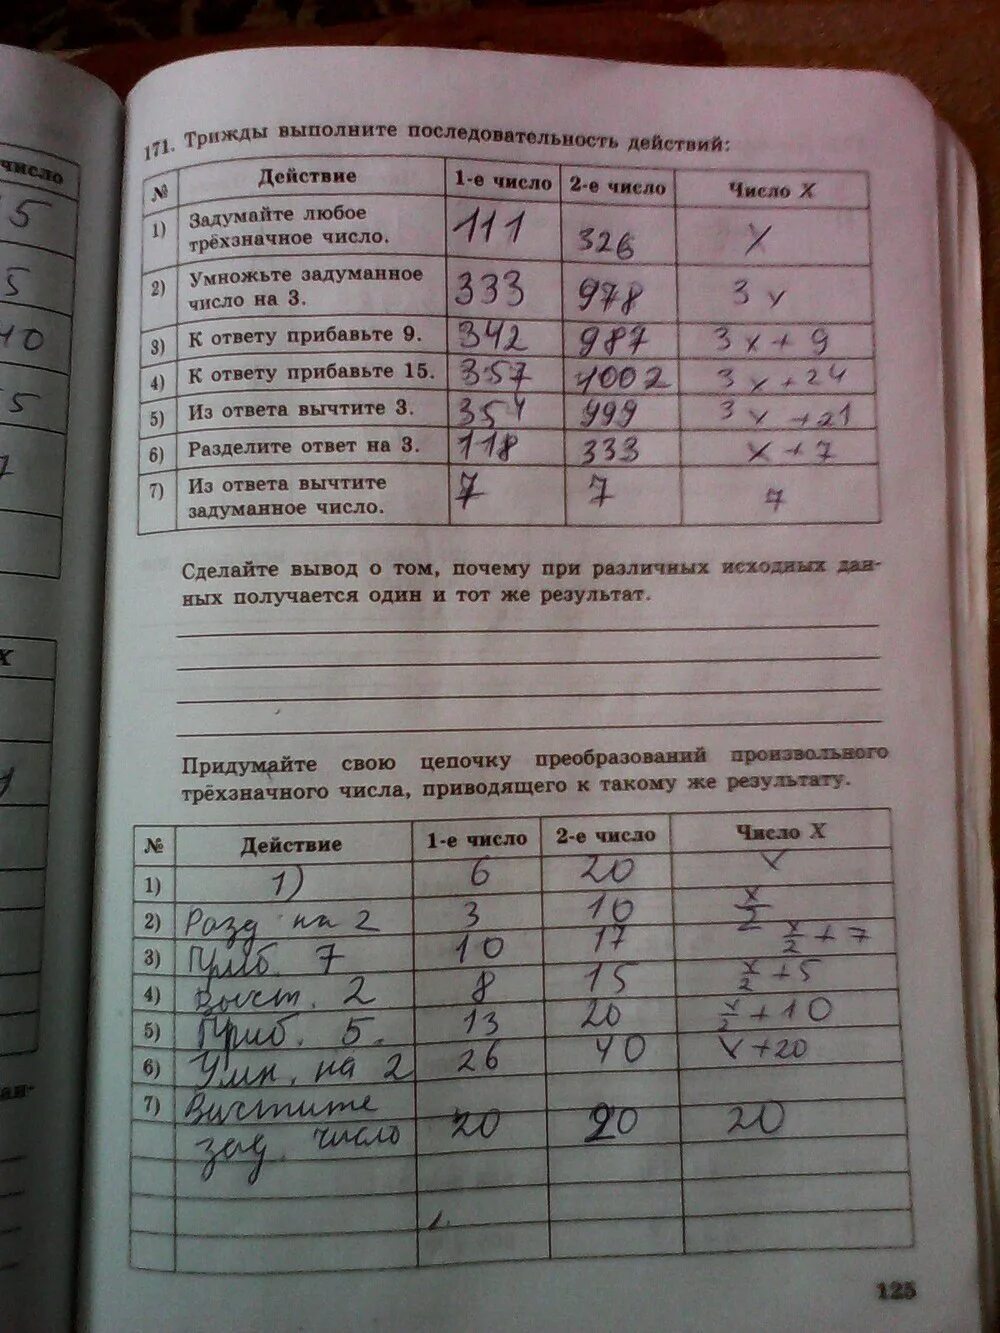 число
5
5
40
5
7
х
171. Трижды выполните последовательность действий:
№ Действие 1-е число 2-е число Число X
1) Задумайте любое трёхзначное число. 111 326 x
2) Умножьте задуманное число на 3. 333 978 3x
3) К ответу прибавьте 9. 342 987 3x + 9
4) К ответу прибавьте 15. 357 1002 3x + 24
5) Из ответа вычтите 3. 354 999 3x + 21
6) Разделите ответ на 3. 118 333 x + 7
7) Из ответа вычтите задуманное число. 7 7 7
Сделайте вывод о том, почему при различных исходных дан-
ных получается один и тот же результат.
Придумайте свою цепочку преобразований произвольного
трёхзначного числа, приводящего к такому же результату.
№ Действие 1-е число 2-е число Число X
1) 1) 6 20 x
2) Разд на 2 3 10 x/2
3) Приб. 7 10 17 x/2 + 7
4) Выст. 2 8 15 x/2 + 5
5) Приб. 5. 13 20 x/2 + 10
6) Умн. на 2 26 40 x + 20
7) Вистите
зад. число 20 20 20
ан-
125